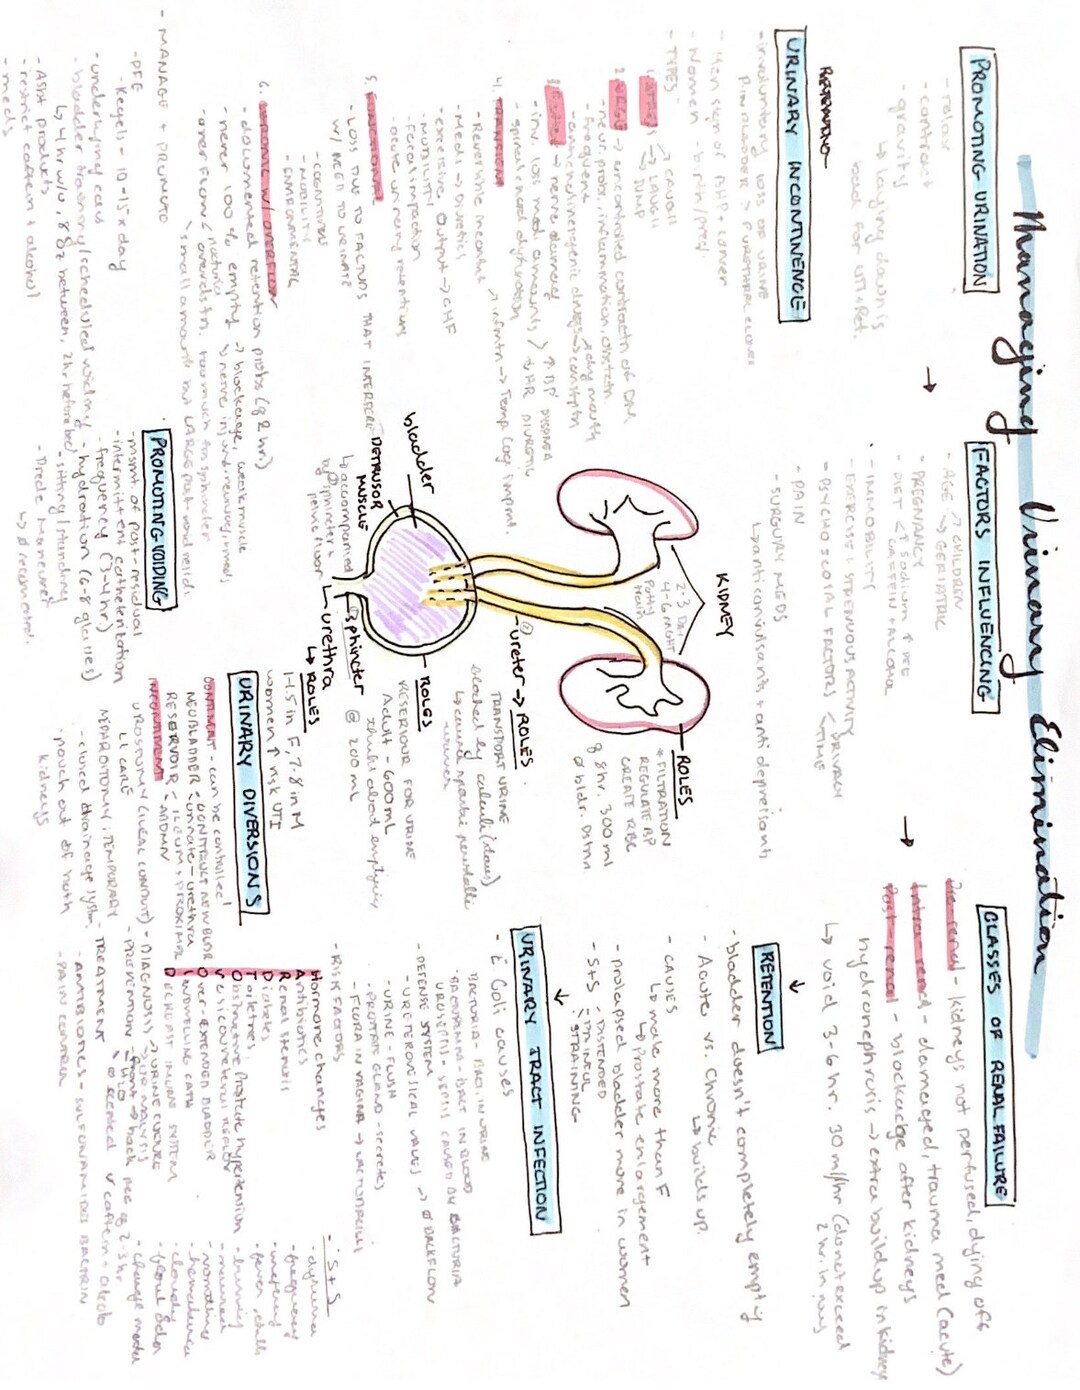 Managing Urinary Elimination
PROMOTING URINATION
- relax
- contract
- gravity
↳ laying down is
bad for UTI + Ret.
URINARY INCONTINENCE
- involuntary loss of urine
P in bladder > P urethral
- Men sign of BPH + cancer
- Women - birth/
- TYPES -
1. STRESS → COUGH
→ LAUGH
→ JUMP
2. URGE → uncontrolled contractn of DM
- neur. probs, inflammation, obstctn
- Frequent
→ dry mouth
→ nerve damage
- spinal cord dysfunction
4. TRANSIENT
- Reversible incont.
- Meds → diuretics
- excessive output → CHF
- MOBILITY
- Fecal impaction
- acute urinary retentions
5. FUNCTIONAL
- LOSS DUE TO FACTORS THAT INTERFERE
W/ NEED TO URINATE
- COGNITIVE
- MOBILITY
- ENVIRONMENTAL
6. CHRONIC W/ OVERFLOW
- documented retention probs (q 2 hr)
- never 100% empty → blockage, weak muscle
- over flow
small amount but LARGE post void resid.
- MANAGE + PROMOTE
- PFE
- Kegels - 10-15 x day
- underlying caus
- bladder training/scheduled voiding
- Assist products
- restrict caffein + alcohol
- meds
FACTORS INFLUENCING
- AGE → CHILDREN
→ GERIATRIC
- PREGNANCY
- DIET < ↑ SODIUM ↑ PEE
CAFFEIN + ALCOHOL
- IMMOBILITY
- EXERCISE : STRENUOUS ACTIVITY
- PSYCHOSOCIAL FACTORS < PRIVACY
TIME
- PAIN
- SURGURY MEDS
↳ anticonvulsants + anti depressants
KIDNEY
2-3 DAY
4-6 NIGHT
Potty
train
ROLES
* FILTRATION
REGULATE BP
CREATE RBC
q 8hr. 300 ml
ø bldr. Distn
ureter → ROLES
TRANSPORT URINE
blocked by calculi (stones)
bladder
DETRUSOR
MUSCLE
↳ accompanied
by sphincter +
pelvic floor
ROLES
RESERVIOUR FOR URINE
Adult - 600 mL
think about emptying
@ 200 mL
sphincter
urethra
↳ ROLES
1-1.5 in F, 7-8 in M
women ↑ risk UTI
PROMOTING VOIDING
- mgmt of post-residual
- intermittent catheterization
- frequency (3-4 hr)
- hydration (6-8 glasses)
- sitting/standing
- Crede Maneuver
↳ ø recommend.
URINARY DIVERSIONS
CONTINENT - can be controlled
NEOBLADDER < CONSTRUCT NEW BLDR
RESERVOIR < ILEUM + PROXIMAL
INCONTINENT
UROSTOMY (ILEAL CONDUIT)
LL CARE
NEPHROSTOMY, TEMPORARY
- closed drainage system
- pouch out of both
kidneys
CLASSES OF RENAL FAILURE
Pre-renal - kidneys not perfused, dying off
Intra-renal - damaged, trauma med (acute)
Post-renal - blockadge after kidneys
hydronephrosis → extra buildup in kidneys
↳ void 3-6 hr. 30 ml/hr (do not exceed
2 hr. in row)
RETENTION
- bladder doesn't completely empty
- Acute vs. Chronic
↳ builds up.
- CAUSES
↳ male more than F
↳ Prostate enlargement
- prolapsed bladder more in women
- S+S - DISTENDED
- PAINFUL
- STRAINING
URINARY TRACT INFECTION
- E Coli causes
BACTURIA - BACT. IN URINE
BACTEREMIA - BACT IN BLOOD
UROSEPSIS - SEPSIS CAUSED BY BACTURIA
- DEFENSE SYSTEM
- URETEROVESICAL VALVES → ø BACKFLOW
- URINE - FLUSH
- PROSTATE GLAND - secretes
- FLORA IN VAGINA → LACTOBACILLI
- RISK FACTORS
Hormone changes
Antibiotics
Renal stenosis
Diabetes
Toiletries
Obstructive, Prostate hypertension
Vesicoureteral reflux
Over-extended BLADDER
INDWELLING CATH
DECREASE IMMUNE SYSTEM
- DIAGNOSIS → URINE CULTURE
→ URINALYSIS
- PREVENTION - front → back, pee q 2-3 hr
- H2O
- ø scented
- TREATMENT
- ANTIBIOTICS - SULFONAMIDES BACTRIN
- PAIN CONTROL
- S+S
- dysuria
- frequency
- urgency
- fever, chills
- burning
- nausea
- vomiting
- hematuria
- cloudy
- foul odor
- change mental